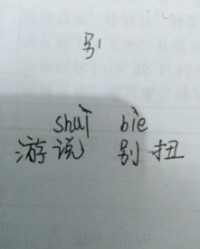 别
shuì biè
游说 别扭